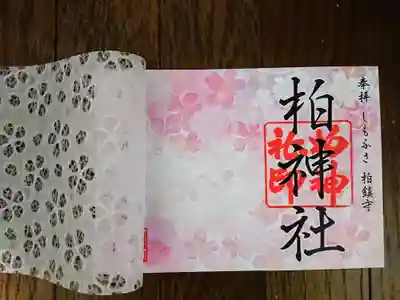 奉拝 しもふさ 柏鎮守
柏神社
柏神社印